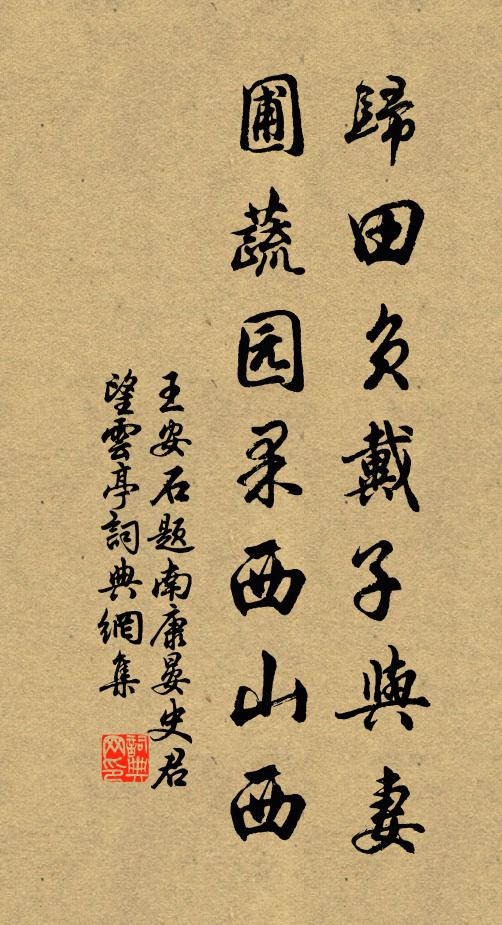 歸田負戴子與妻
圃蔬园果西山西
王安石题南康晏史君
望雲亭詞典網集
詞典网印